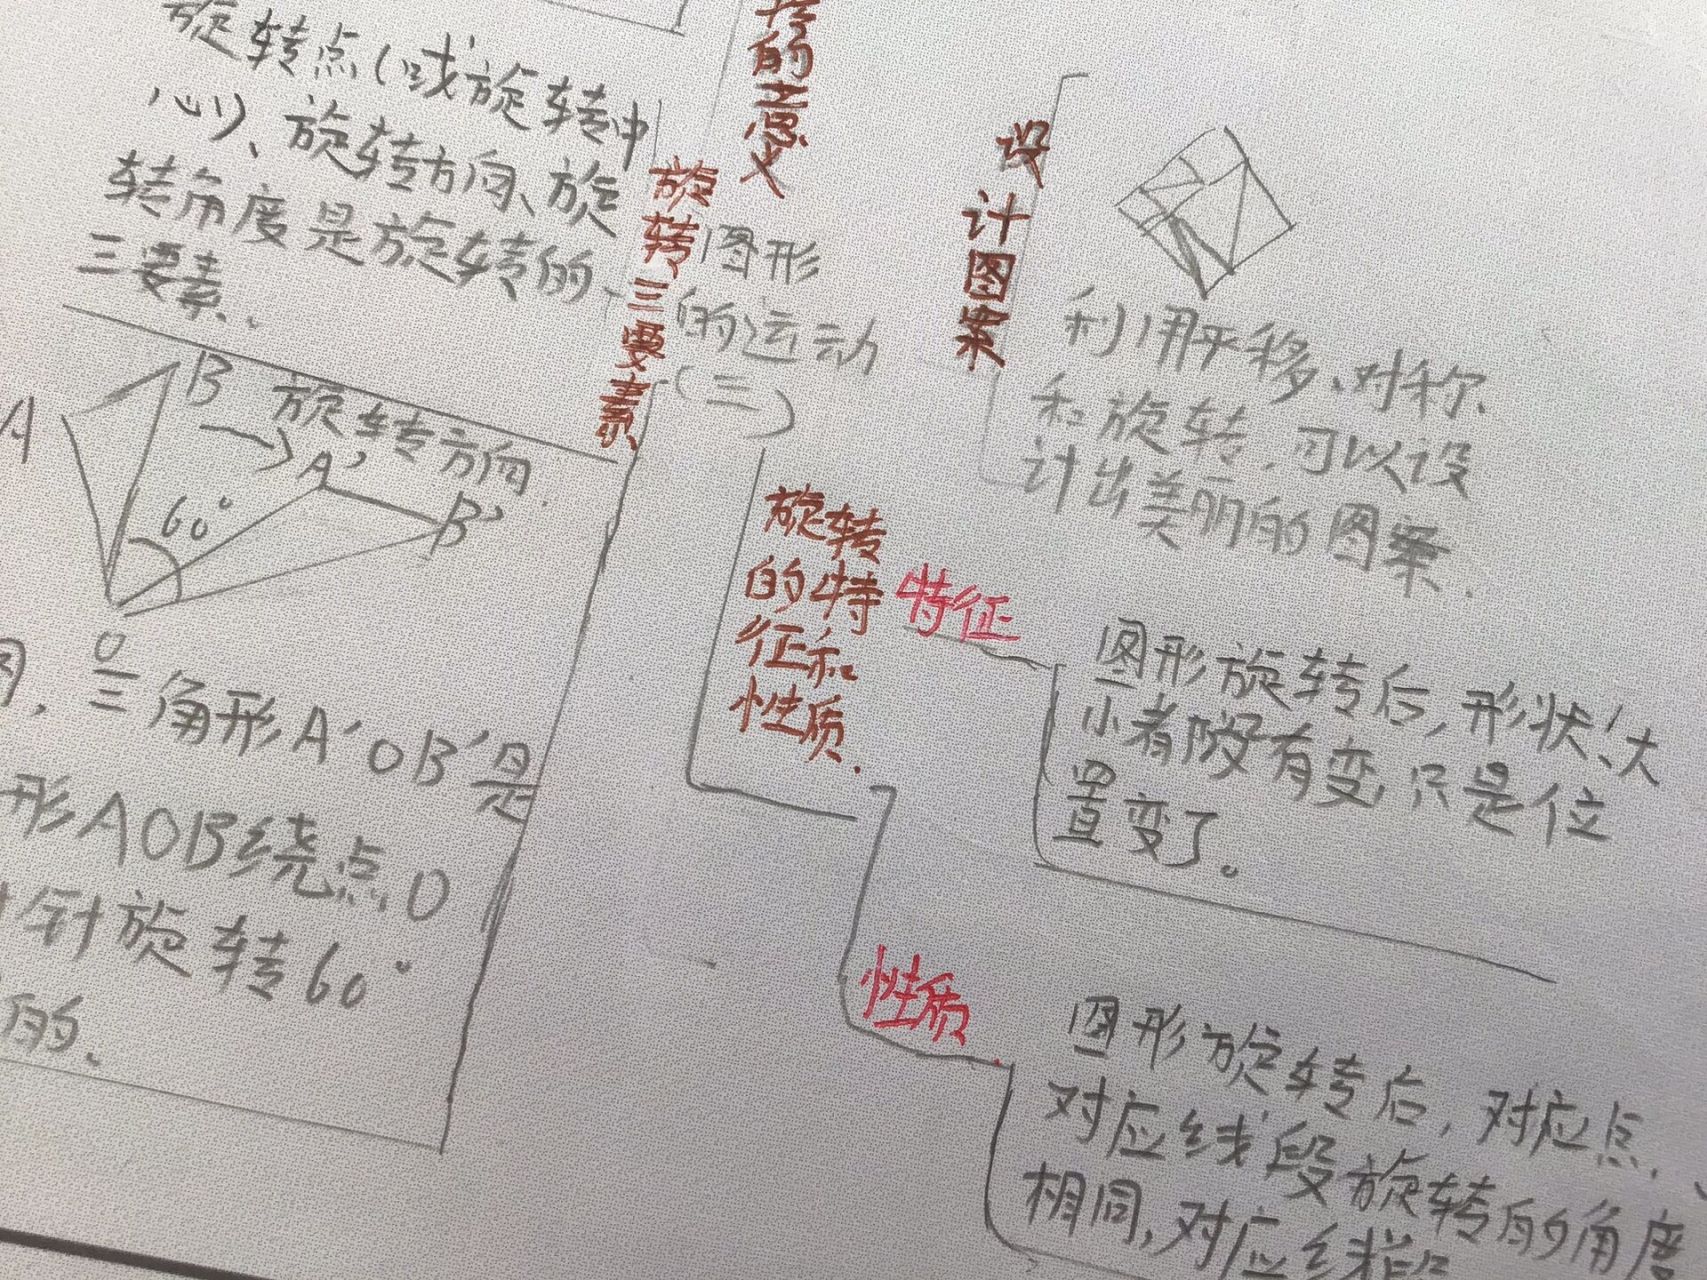 旋转点(或旋转中
心)、旋转方向、旋
转角度是旋转的
三要素.
的意义
旋转三要素
图形
的运动
(三)
设计图案
利用平移、对称
和旋转.可以设
计出美丽的图案.
A
B
旋转方向.
A'
B'
60°
O
三角形A'OB'是
形AOB绕点O
针旋转60°
的.
旋转
的特
征和
性质.
特征
图形旋转后,形状、大
小都没有变,只是位
置变了。
性质.
图形旋转后,对应点、
对应线段旋转的角度
相同,对应线段